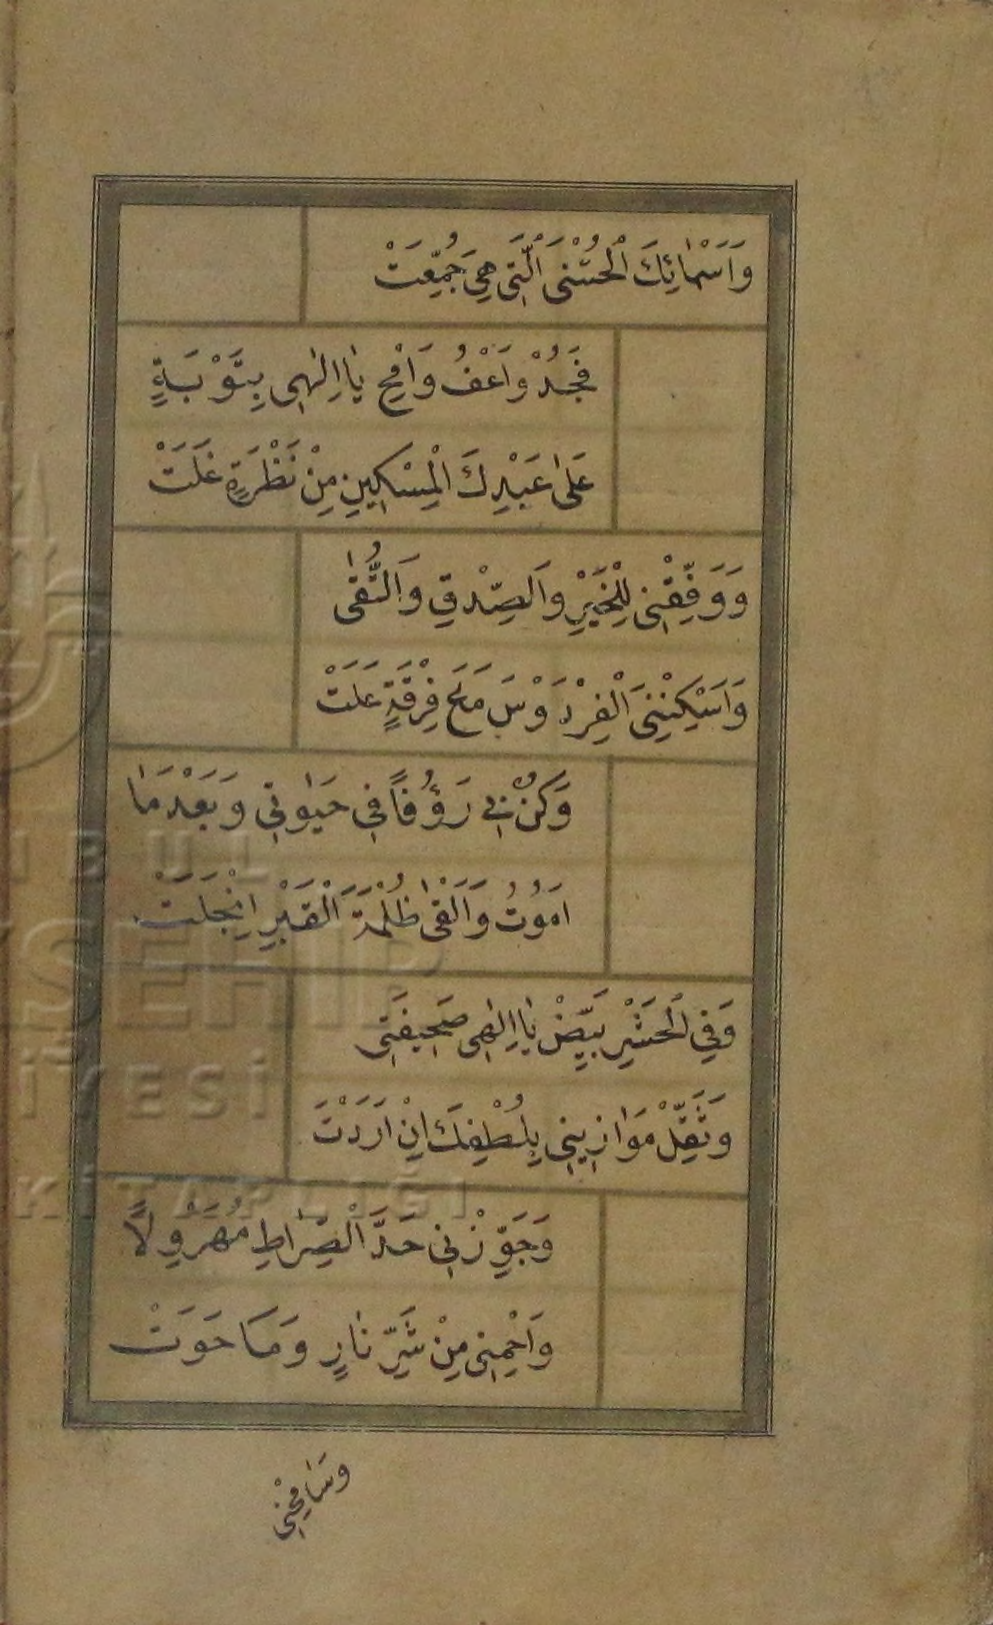 وَاَسْمٰائِكَ الْحُسْنٰى اَلَّتٖى هِىَ جُمِّعَتْ
فَجُدْ وَاعْفُ وَامْحِ يٰا اِلٰهٖى بِتَوْبَةٍ
عَلٰى عَبْدِكَ الْمِسْكٖينِ مِنْ نَظْرَةٍ عَلَتْ
وَوَفِّقْنٖى لِلْخَيْرِ وَالصِّدْقِ وَالتُّقٰى
وَاَسْكِنْنِىَ الْفِرْدَوْسَ مَعَ فِرْقَةٍ عَلَتْ
وَكُنْ بٖى رَؤُفًا فٖى حَيٰوتٖى وَبَعْدَ مٰا
اَمُوتُ وَاَلْقٰى ظُلْمَةَ الْقَبْرِ انْجَلَتْ
وَفِى الْحَشْرِ بَيِّضْ يٰا اِلٰهٖى صَحٖيفَتٖى
وَثَقِّلْ مَوٰازٖينٖى بِلُطْفِكَ اِنْ اَرَدْتَ
وَجَوِّزْنٖى حَدَّ الْصِّرٰاطِ مُهَرْوِلًا
وَاحْمِنٖى مِنْ شَرِّ نٰارٍ وَمَا حَوَتْ
وَسٰامِحْنٖى
İBUL
YÜKSEHİR
İYESİ
KİTAPLIĞI